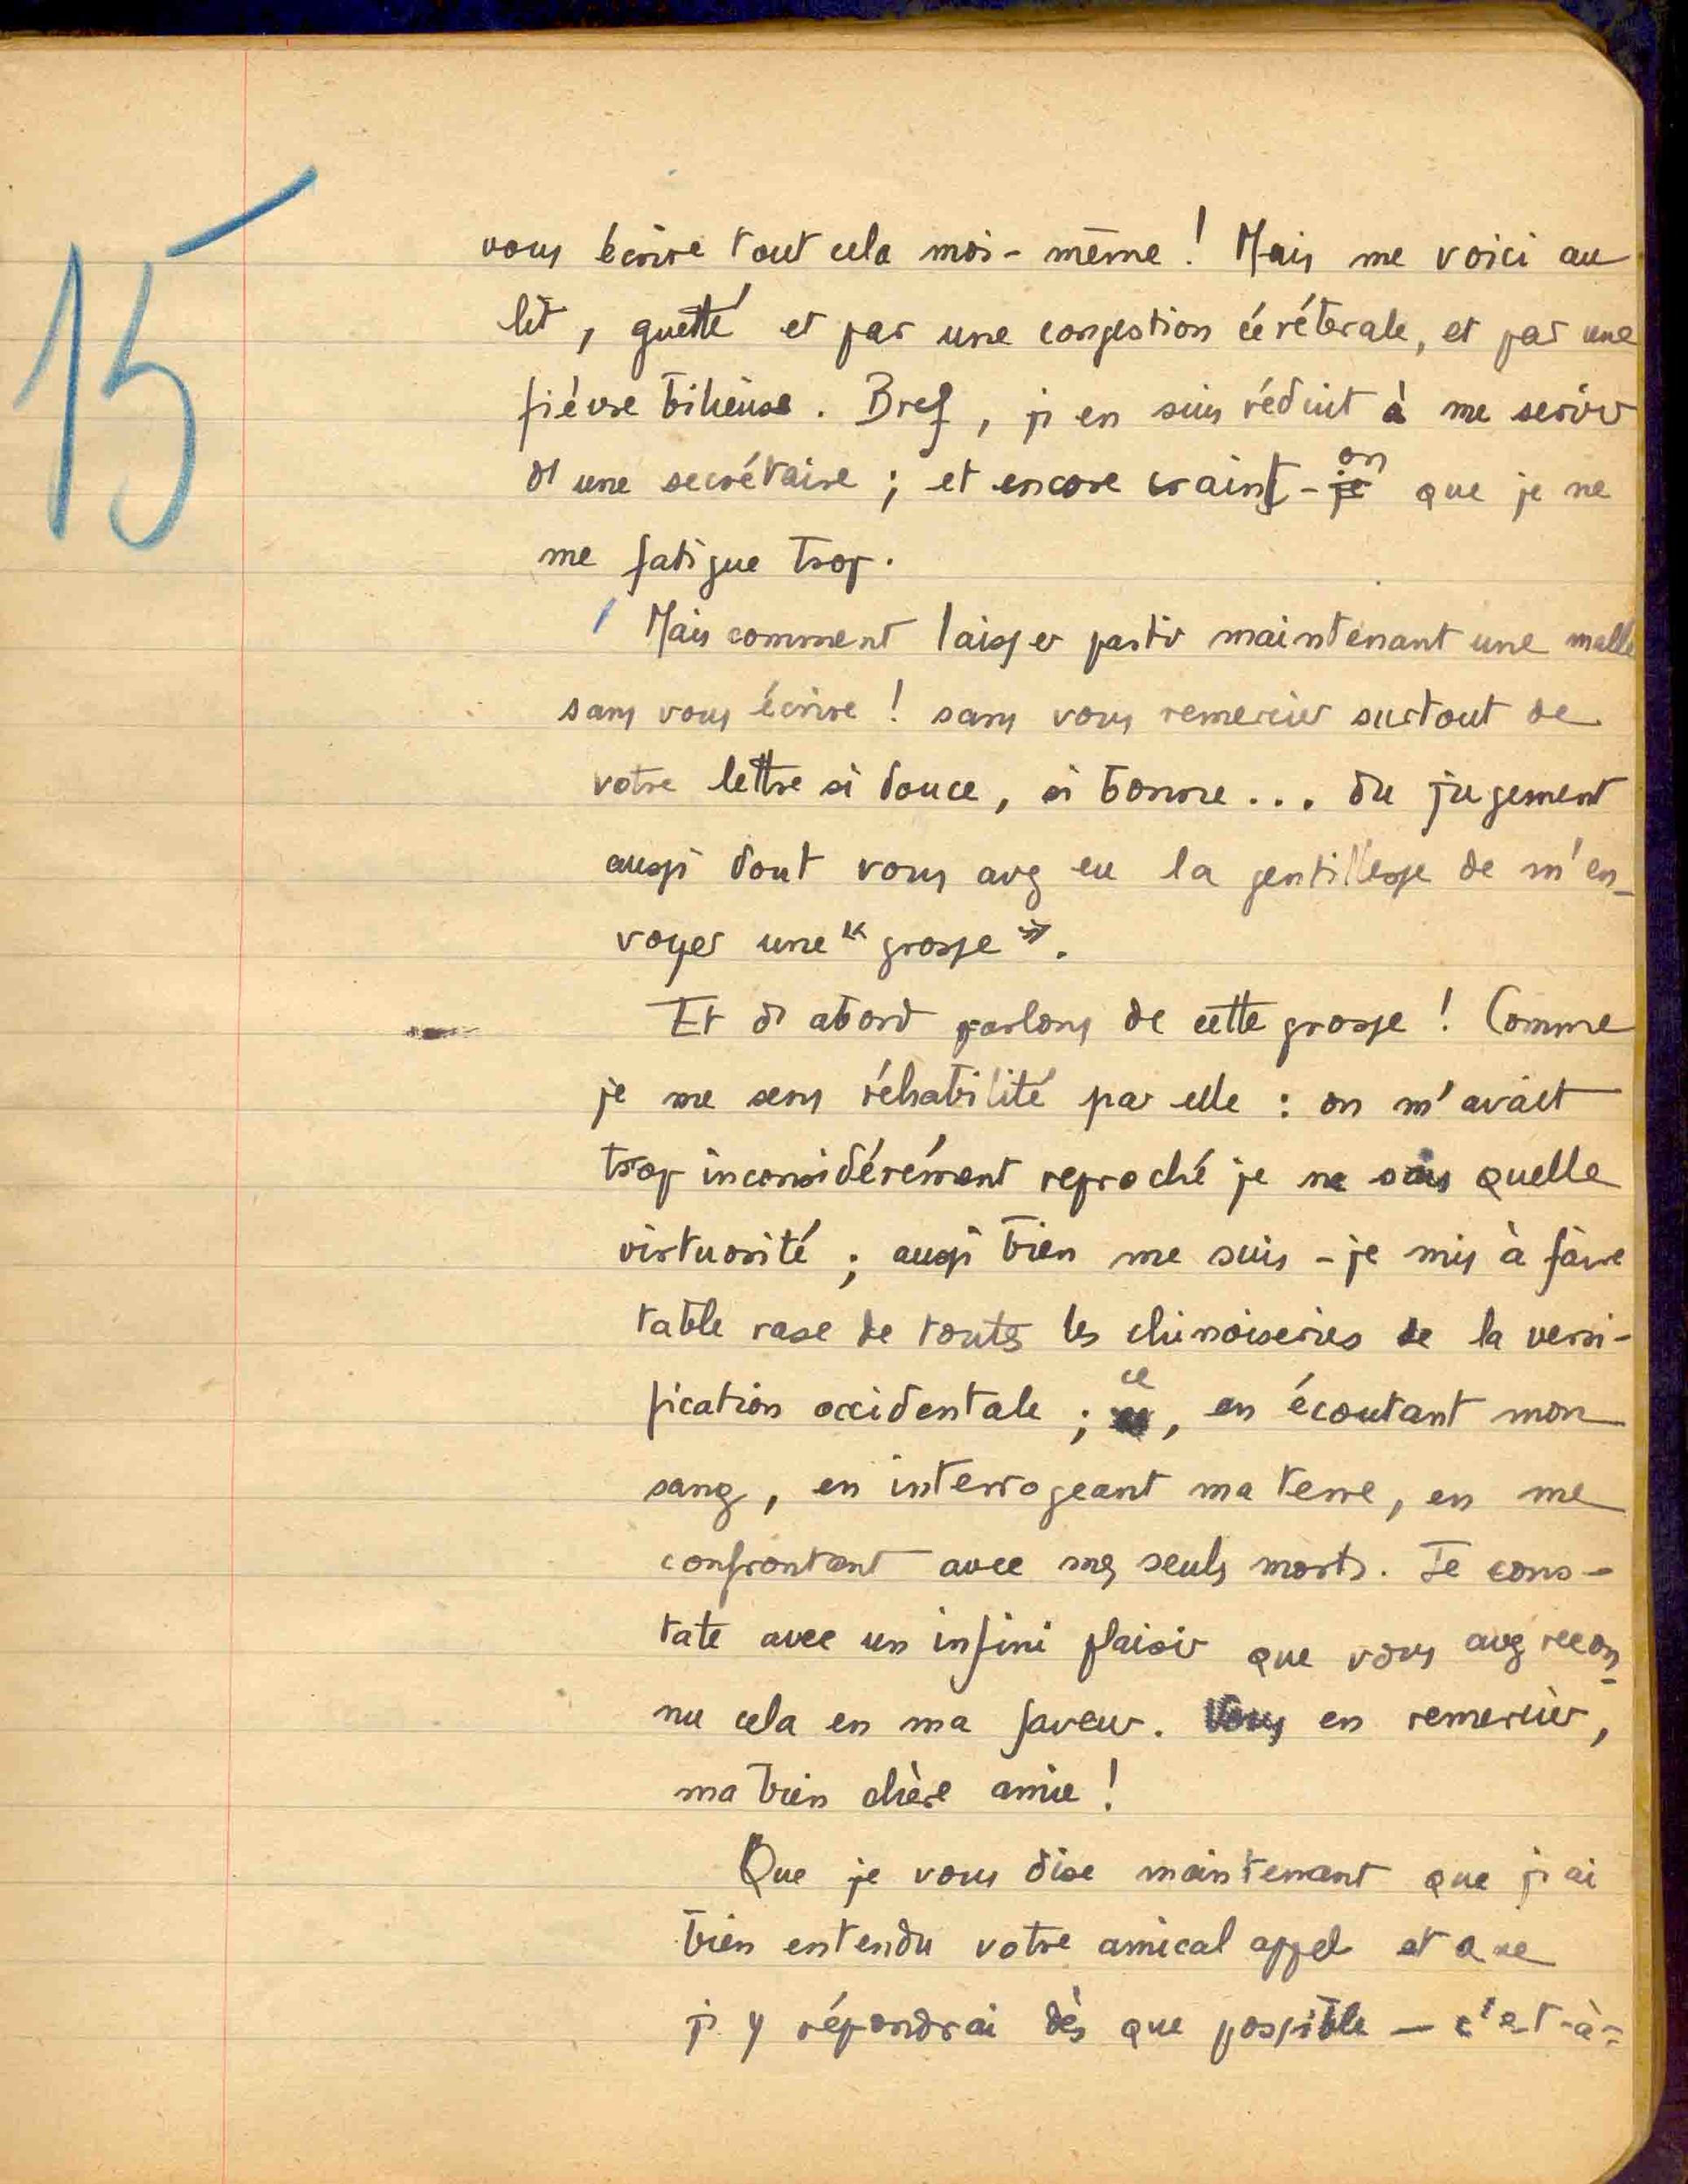 15
vous écrire tout cela moi-même ! Mais me voici au
lit, guetté et par une congestion cérébrale, et par une
fièvre bilieuse. Bref, j'en suis réduit à me servir
d'une secrétaire ; et encore craint-on que je ne
me fatigue trop.
Mais comment laisser partir maintenant une malle
sans vous écrire ! sans vous remercier surtout de
votre lettre si douce, si bonne... du jugement
aussi dont vous avez eu la gentillesse de m'en-
voyer une « grosse ».
Et d'abord parlons de cette grosse ! Comme
je me sens réhabilité par elle : on m'avait
trop inconsidérément reproché je ne sais quelle
virtuosité ; aussi bien me suis-je mis à faire
table rase de toutes les chinoiseries de la versi-
fication occidentale ; ce, en écoutant mon
sang, en interrogeant ma terre, en me
confrontant avec mes seuls morts. Je cons-
tate avec un infini plaisir que vous avez recon-
nu cela en ma faveur. Vous en remercier,
ma bien chère amie !
Que je vous dise maintenant que j'ai
bien entendu votre amical appel et que
j'y répondrai dès que possible — c'est-à-